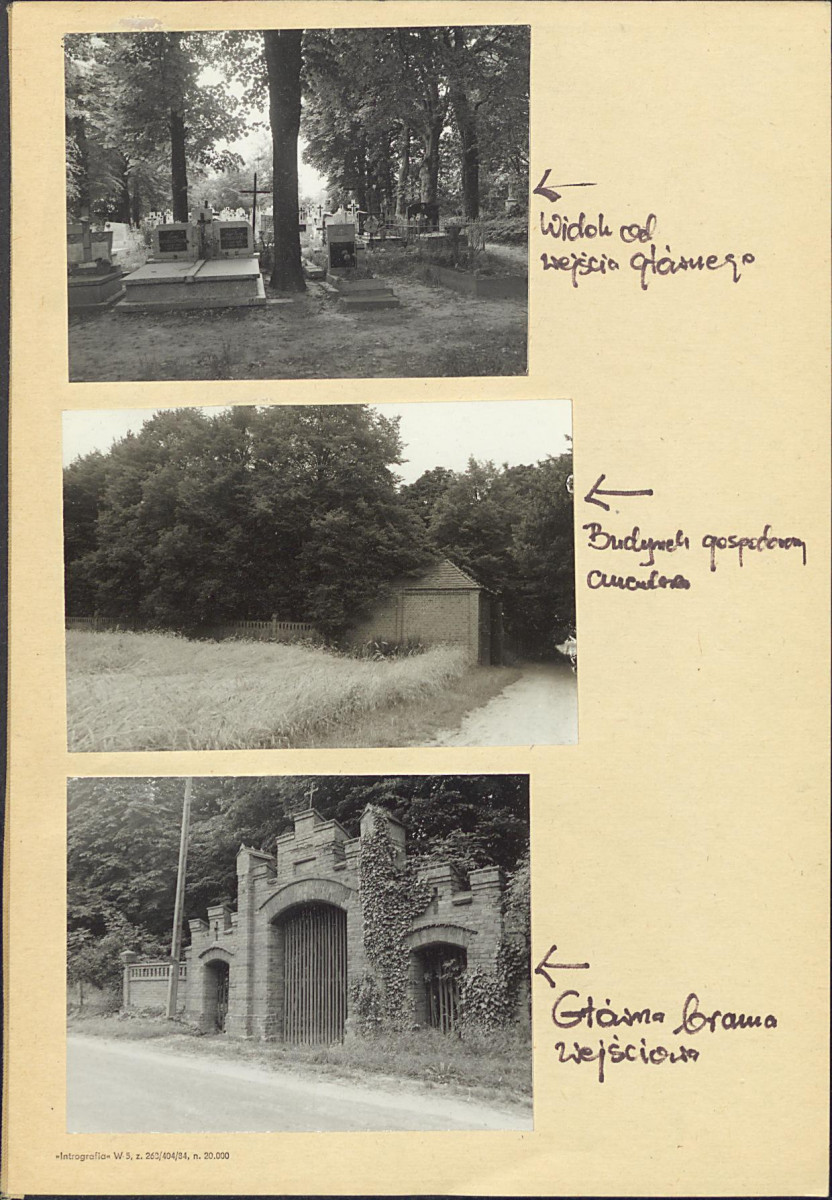 Widok od
wejścia głównego
Budynek gospodarczy
cmentarza
Główna brama
wejściowa
»Introgrofia« W-5, z. 263/404/84, n. 20.000